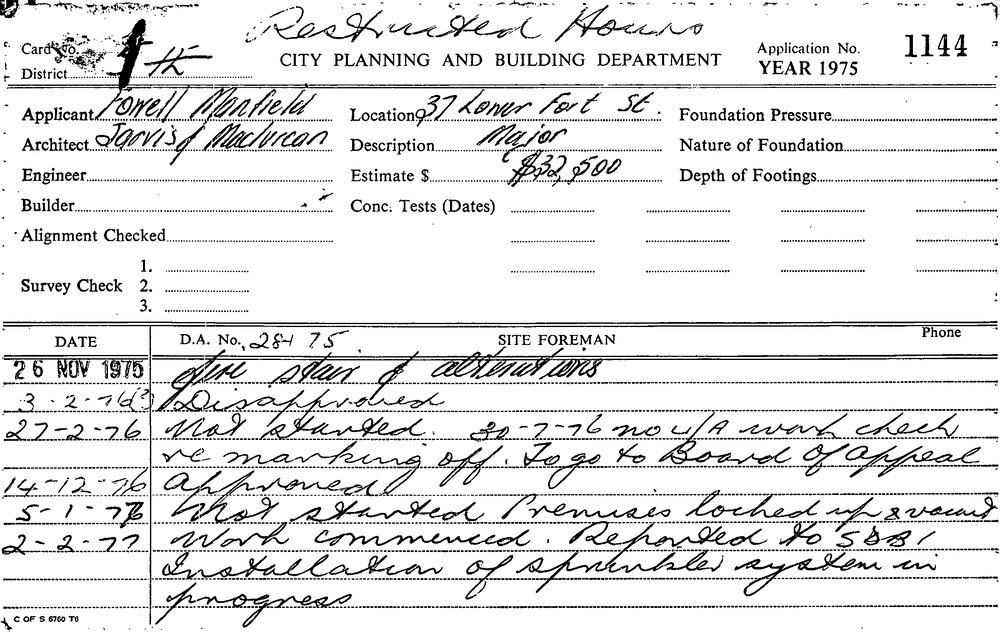 Restricted Hours
Card No.
District
CITY PLANNING AND BUILDING DEPARTMENT
Application No. 1144
YEAR 1975
Applicant Fowell Manfield
Location 37 Lower Fort St.
Foundation Pressure
Architect Jarvis & Maclurcan
Description Major
Nature of Foundation
Engineer
Estimate $ $32,500
Depth of Footings
Builder
Conc. Tests (Dates)
Alignment Checked
Survey Check 1.
2.
3.
DATE D.A. No. 284 75 SITE FOREMAN Phone
26 NOV 1975 fire stair & alterations
3-2-76 (3) Disapproved
27-2-76 Not started. 30-7-76 no u/A work check
re marking off. To go to Board of Appeal
14-12-76 Approved
5-1-77 Not started Premises locked up & vacant
2-2-77 Work commenced. Reported to SDBI
Installation of sprinkler system in
progress
C OF S 6760 T6